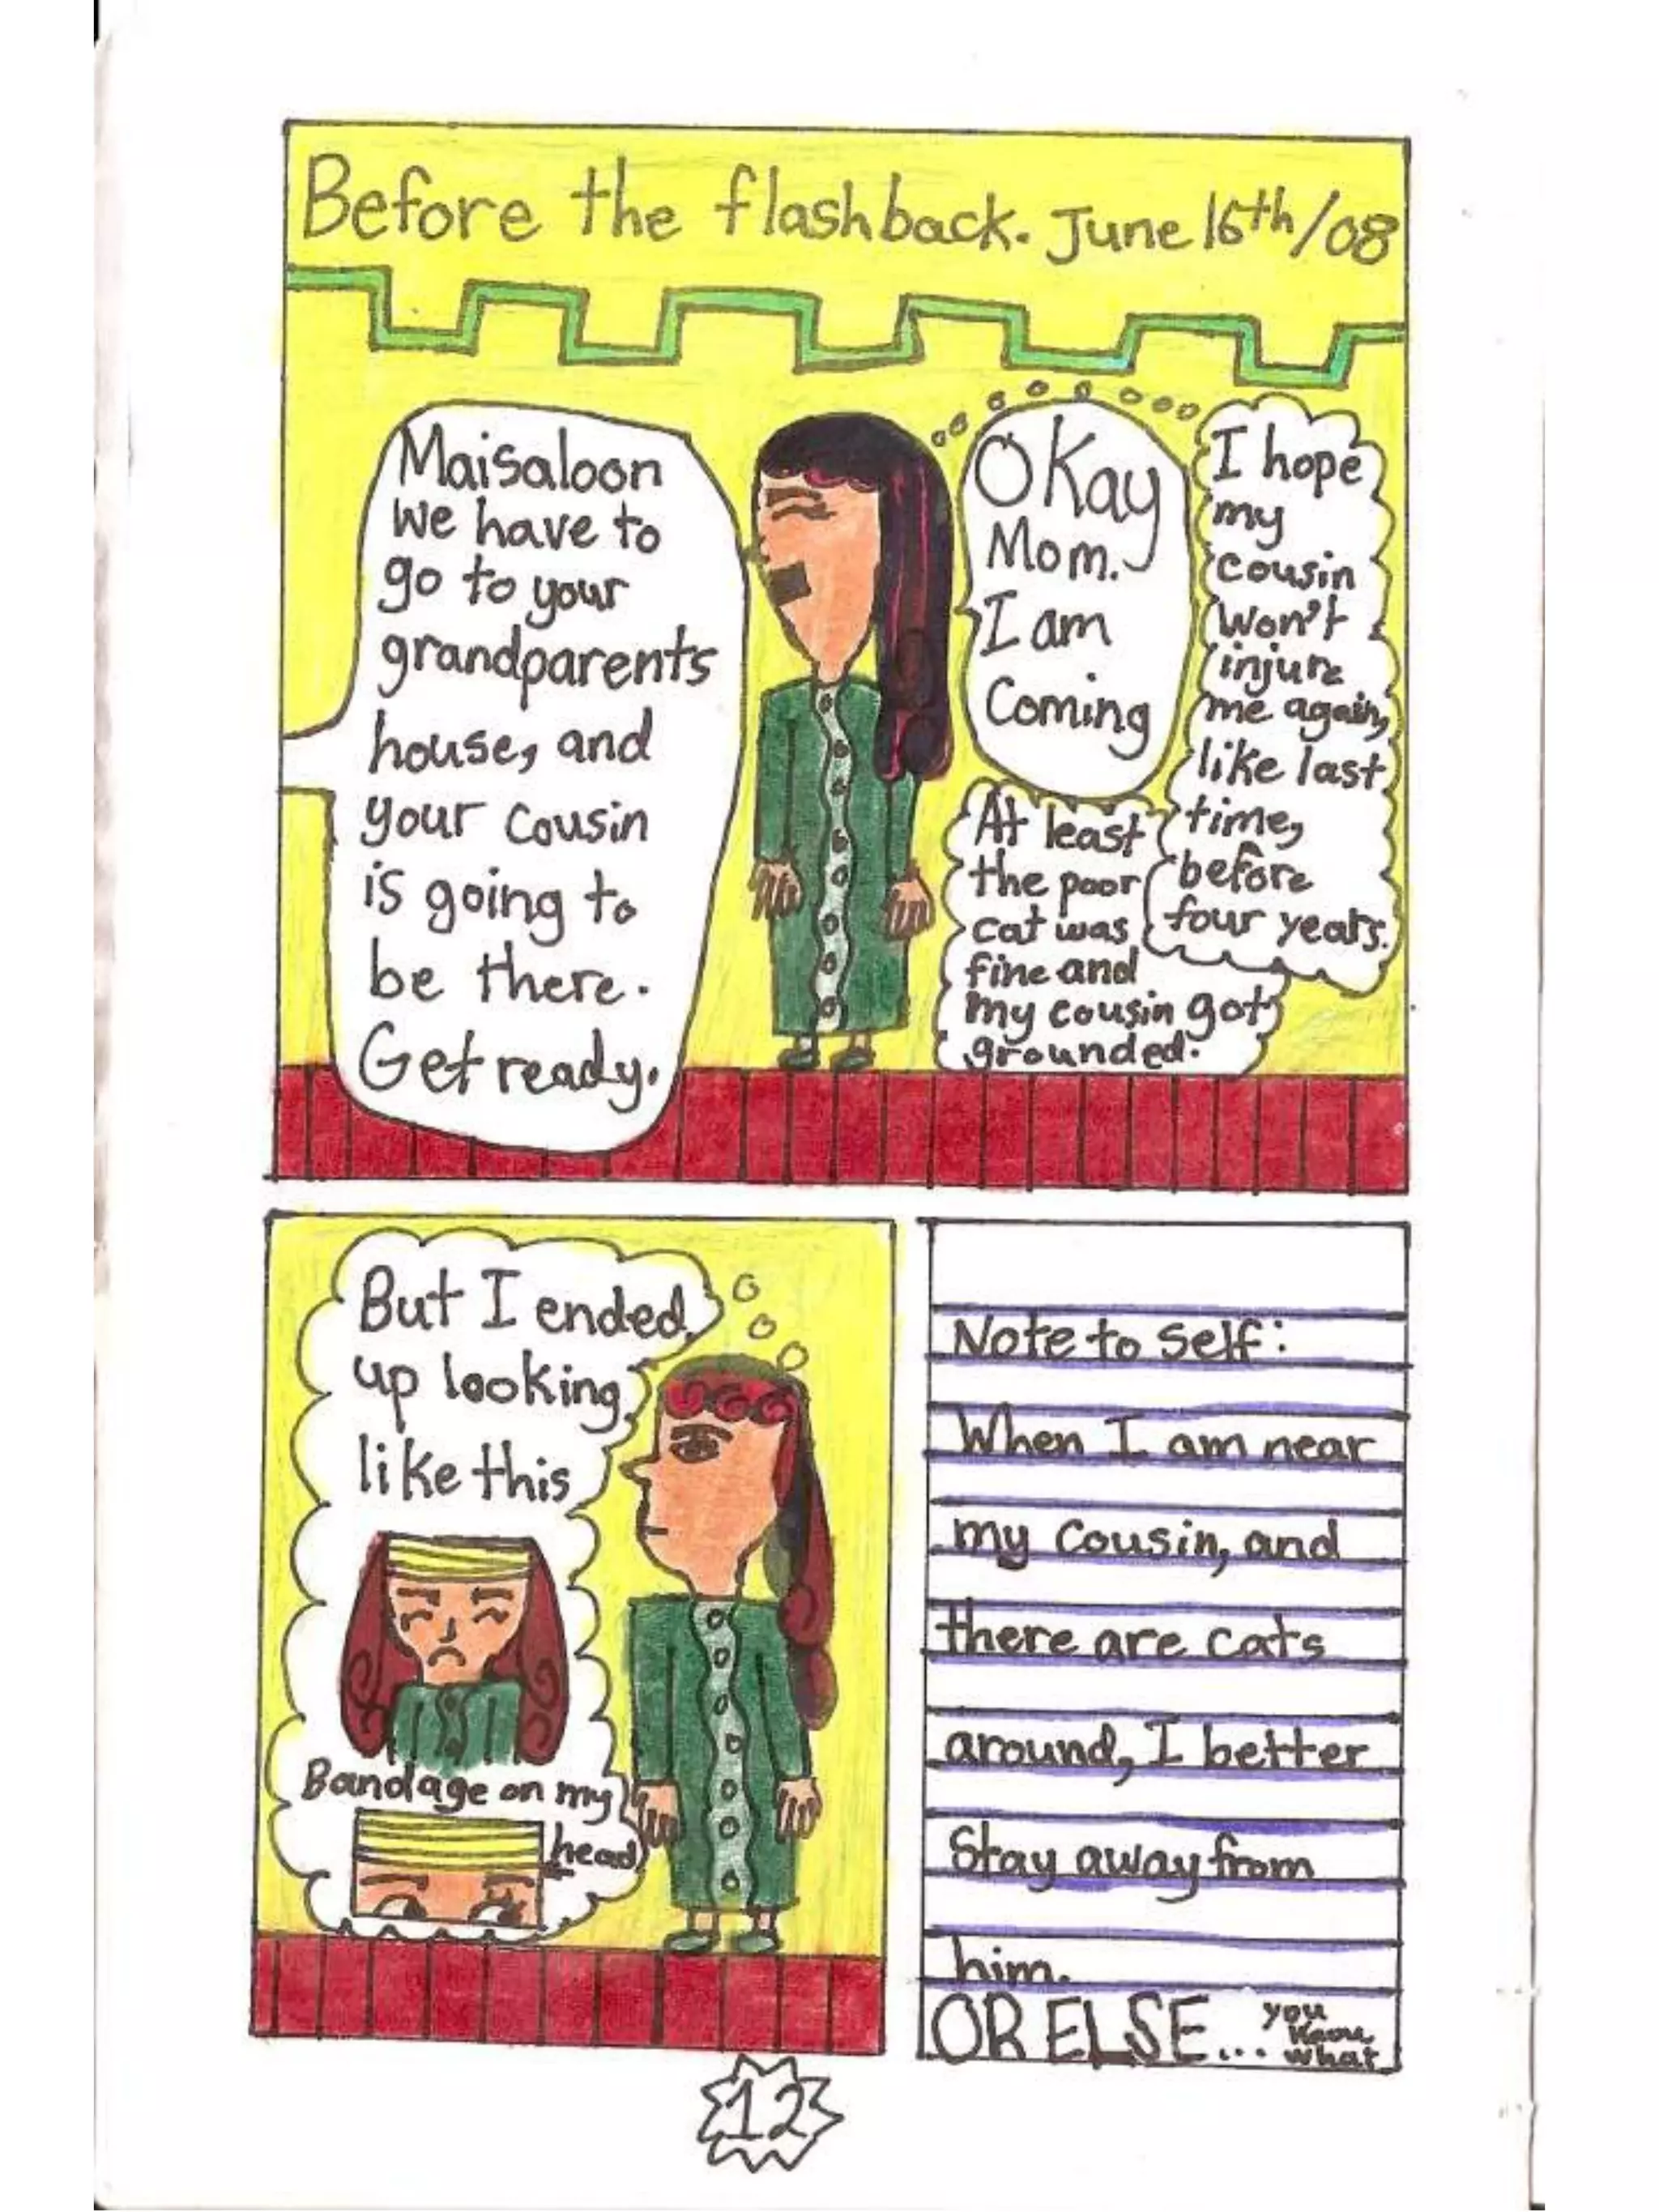 Before the flashback. June 16th/08
Maisaloon
we have to
go to your
grandparents
house, and
your cousin
is going to
be there.
Get ready.
Okay
Mom.
I am
Coming
I hope
my
cousin
won't
injure
me again,
like last
time,
before
four years.
At least
the poor
cat was
fine and
my cousin got
grounded.
But I ended
up looking
like this
Bandage on my
head
Note to self:
When I am near
my cousin, and
there are cats
around, I better
Stay away from
him.
OR ELSE... you
know
what
12